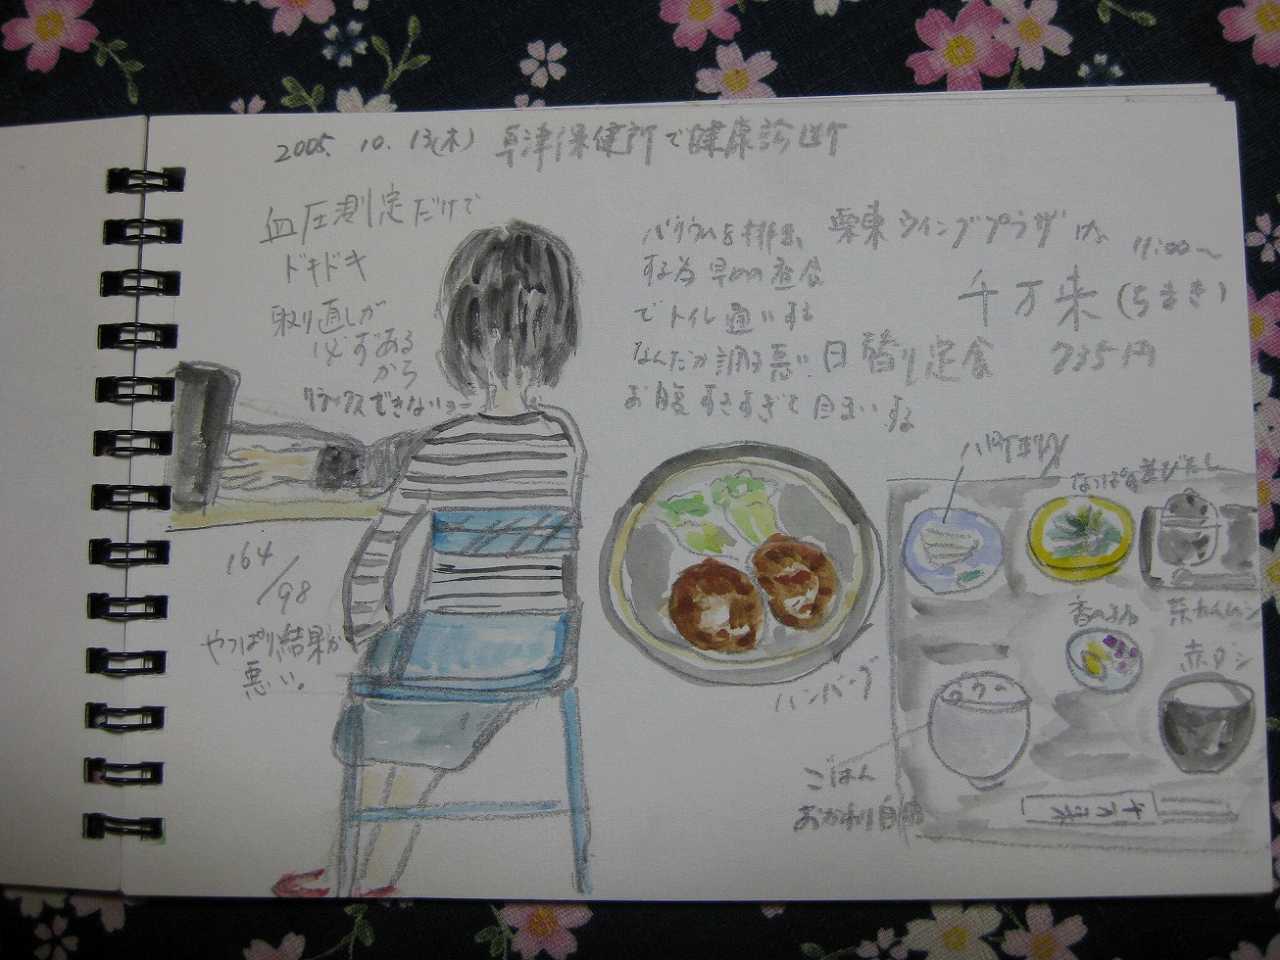 2005. 10. 13(木) 草津保健所で健康診断
血圧測定だけで
ドキドキ
取り直しが
必ずある
から
リラックスできないョー
164
/98
やっぱり結果が
悪い。
バリウムを排出
する為早めの昼食
でトイレ通いする
なんだか調子悪い
お腹すきすぎて目まいする
栗東ウイングプラザ
11:00～
千万来(ちまき)
日替り定食 735円
ハンバーグ
なっぱの煮びたし
香のもの
茶わんムシ
赤ダシ
ごはん
おかわり自由
千万来